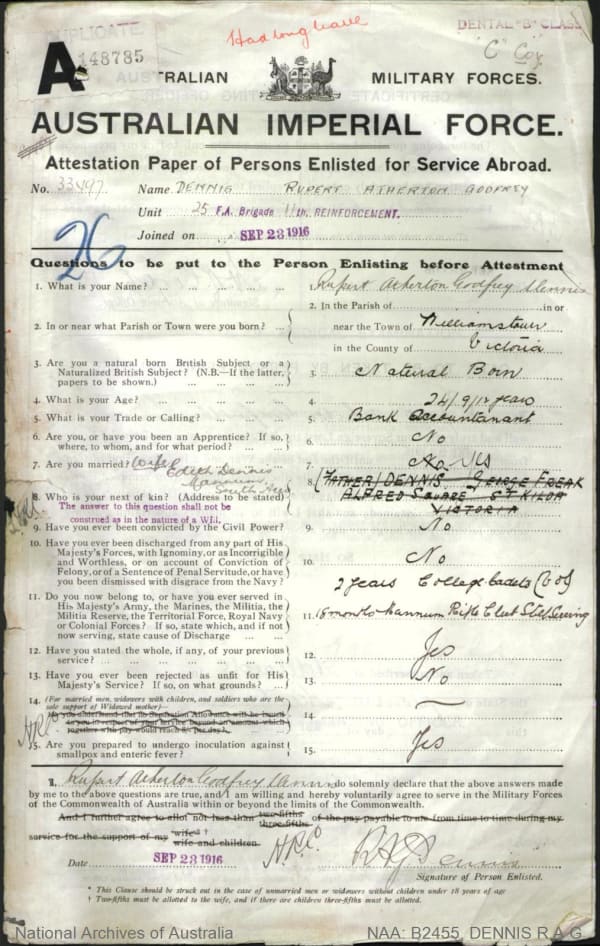 DUPLICATE
148785
Had long leave
DENTAL "B" CLASS
"C" Coy
A TRALIAN MILITARY FORCES.
AUSTRALIAN IMPERIAL FORCE.
Attestation Paper of Persons Enlisted for Service Abroad.
No. 33497 Name DENNIS RUPERT ATHERTON GODFREY
Unit 25 F.A. Brigade 11th REINFORCEMENT.
Joined on SEP 23 1916
26
Questions to be put to the Person Enlisting before Attestment
1. What is your Name? 1. Rupert Atherton Godfrey Dennis
2. In or near what Parish or Town were you born? 2. In the Parish of in or
near the Town of Williamstown
in the County of Victoria
3. Are you a natural born British Subject or a
Naturalized British Subject? (N.B.—If the latter,
papers to be shown.) 3. Natural Born
4. What is your Age? 4. 24/9/12 years
5. What is your Trade or Calling? 5. Bank Accountanant
6. Are you, or have you been an Apprentice? If so,
where, to whom, and for what period? 6. No
7. Are you married? 7. No Yes
Wife Edith Dennis
Mannum
South Aus
8. Who is your next of kin? (Address to be stated) 8. (FATHER) DENNIS GEORGE FREAK
ALFRED SQUARE ST KILDA
VICTORIA
The answer to this question shall not be
construed as in the nature of a Will.
9. Have you ever been convicted by the Civil Power? 9. No
10. Have you ever been discharged from any part of His
Majesty's Forces, with Ignominy, or as Incorrigible
and Worthless, or on account of Conviction of
Felony, or of a Sentence of Penal Servitude, or have
you been dismissed with disgrace from the Navy? 10. No
2 years College Cadets (Vol)
11. Do you now belong to, or have you ever served in
His Majesty's Army, the Marines, the Militia, the
Militia Reserve, the Territorial Force, Royal Navy
or Colonial Forces? If so, state which, and if not
now serving, state cause of Discharge 11. 18 months Mannum Rifle Club Still Serving
12. Have you stated the whole, if any, of your previous
service? 12. Yes
13. Have you ever been rejected as unfit for His
Majesty's Service? If so, on what grounds? 13. No
14. (For married men, widowers with children, and soldiers who are the
sole support of Widowed mother)—
Do you understand that no Separation Allowance will be issued
to you in respect of your service beyond an amount which
together with pay would reach 8s. per day? 14. —
15. Are you prepared to undergo inoculation against
smallpox and enteric fever? 15. Yes
I, Rupert Atherton Godfrey Dennis do solemnly declare that the above answers made
by me to the above questions are true, and I am willing and hereby voluntarily agree to serve in the Military Forces
of the Commonwealth of Australia within or beyond the limits of the Commonwealth.
And I further agree to allot not less than two-fifths three-fifths of the pay payable to me from time to time during my
service for the support of my wife* † wife and children
Date SEP 23 1916 R A G Dennis
Signature of Person Enlisted.
* This Clause should be struck out in the case of unmarried men or widowers without children under 18 years of age
† Two-fifths must be allotted to the wife, and if there are children three-fifths must be allotted.
National Archives of Australia NAA: B2455, DENNIS R A G